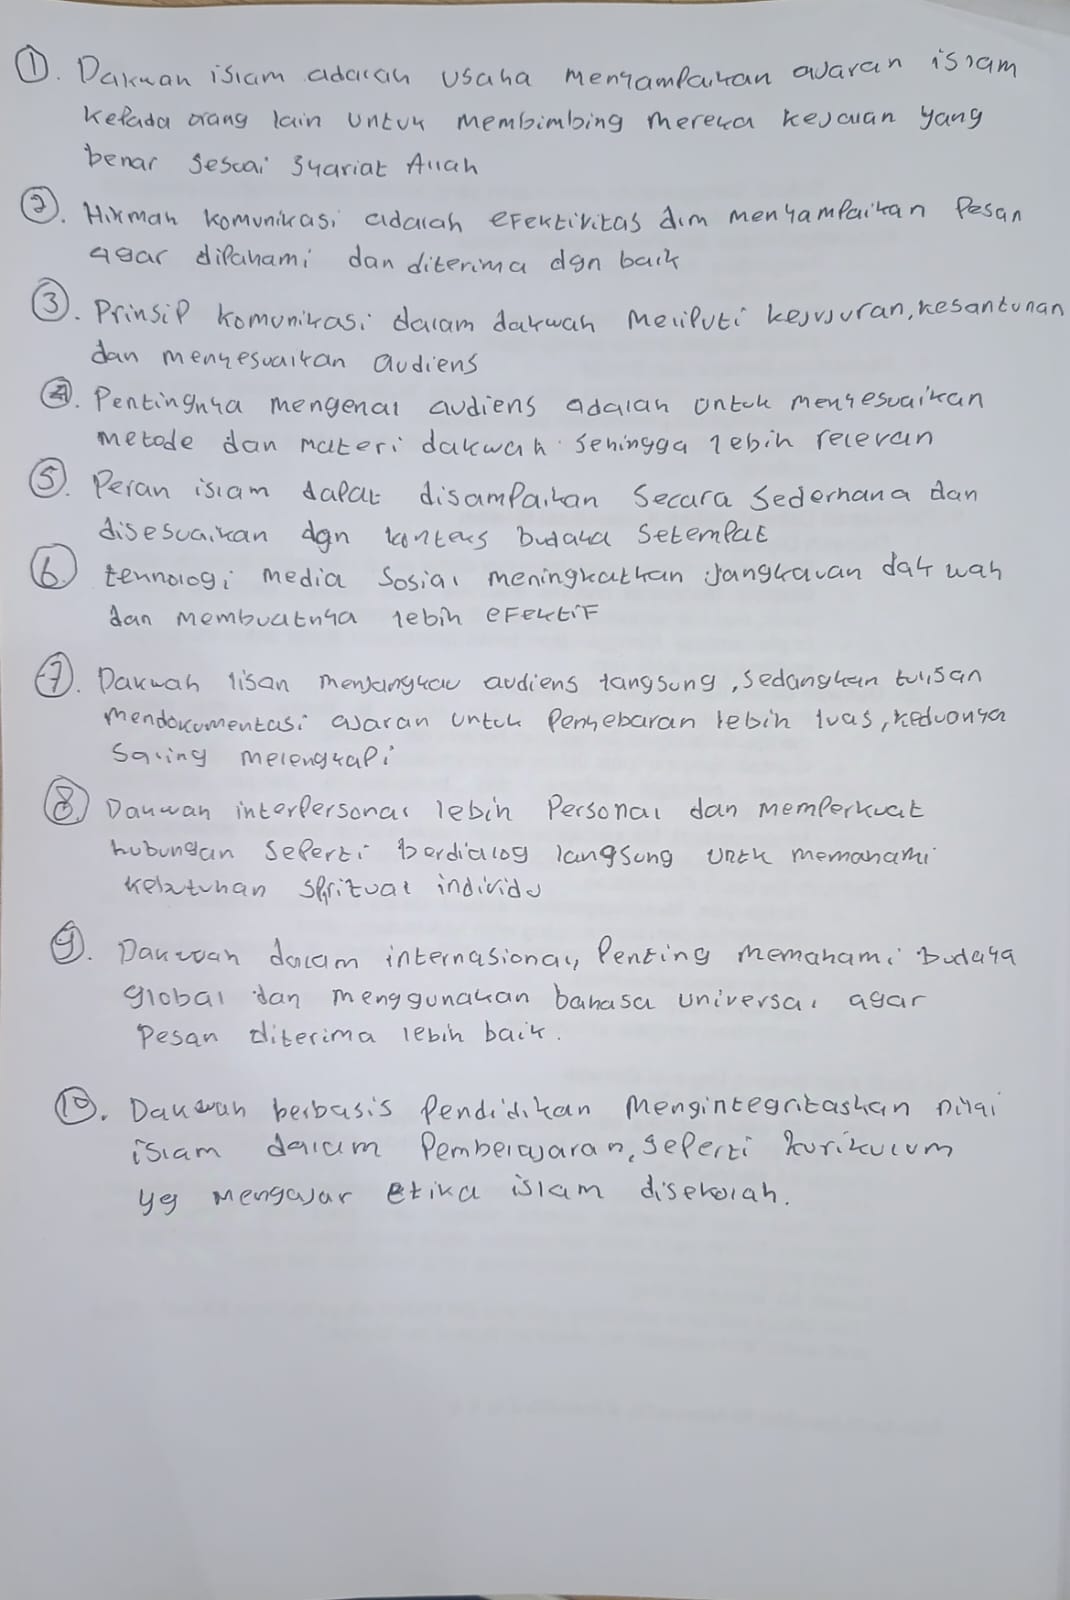 1. Dakwah islam adalah usaha menyampaikan ajaran islam
kepada orang lain untuk membimbing mereka kejalan yang
benar sesuai syariat Allah
2. Hikmah komunikasi adalah efektivitas dlm menyampaikan pesan
agar dipahami dan diterima dgn baik
3. Prinsip komunikasi dalam dakwah meliputi kejujuran, kesantunan
dan menyesuaikan audiens
4. Pentingnya mengenal audiens adalah untuk menyesuaikan
metode dan materi dakwah sehingga lebih relevan
5. Peran islam dapat disampaikan secara sederhana dan
disesuaikan dgn konteks budaya setempat
6. teknologi media sosial meningkatkan jangkauan dakwah
dan membuatnya lebih efektif
7. Dakwah lisan menjangkau audiens langsung, sedangkan tulisan
mendokumentasi ajaran untuk penyebaran lebih luas, keduanya
saling melengkapi
8. Dakwah interpersonal lebih personal dan memperkuat
hubungan seperti berdialog langsung untk memahami
kebutuhan spritual individu
9. Dakwah dalam internasional, penting memahami budaya
global dan menggunakan bahasa universal agar
pesan diterima lebih baik.
10. Dakwah berbasis pendidikan mengintegritaskan nilai
islam dalam pembelajaran, seperti kurikulum
yg mengajar etika islam disekolah.